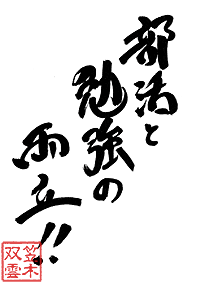 部活と
勉強の
両立!!
笠木
双雲